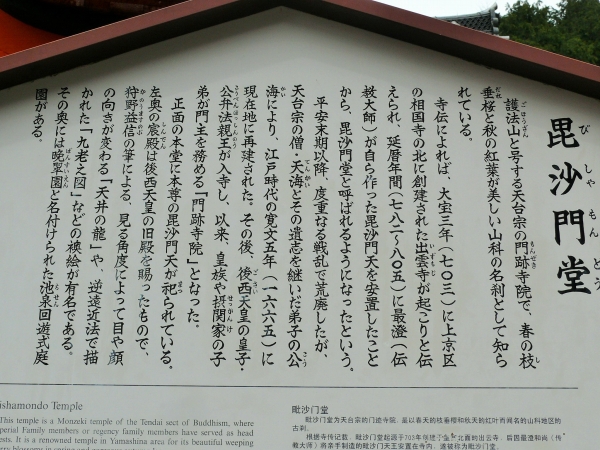 毘沙門堂
びしゃもんどう
護法山と号する天台宗の門跡寺院で、春の枝
垂桜と秋の紅葉が美しい山科の名刹として知ら
れている。
寺伝によれば、大宝三年(七〇三)に上京区
の相国寺の北に創建された出雲寺が起こりと伝
えられ、延暦年間(七八二〜八〇五)に最澄(伝
教大師)が自ら作った毘沙門天を安置したこと
から、毘沙門堂と呼ばれるようになったという。
平安末期以降、度重なる戦乱で荒廃したが、
天台宗の僧・天海とその遺志を継いだ弟子の公
海により、江戸時代の寛文五年(一六六五)に
現在地に再建された。その後、後西天皇の皇子・
公弁法親王が入寺し、以来、皇族や摂関家の子
弟が門主を務める「門跡寺院」となった。
正面の本堂に本尊の毘沙門天が祀られている。
左奥の宸殿は後西天皇の旧殿を賜ったもので、
狩野益信の筆による、見る角度によって目や顔
の向きが変わる「天井の龍」や、逆遠近法で描
かれた「九老之図」などの襖絵が有名である。
その奥には晩翠園と名付けられた池泉回遊式庭
園がある。
ishamondo Temple
This temple is a Monzeki temple of the Tendai sect of Buddhism, where
perial Family members or regency family members have served as head
ests. It is a renowned temple in Yamashina area for its beautiful weeping
毗沙门堂
毗沙门堂为天台宗的门迹寺院，是以春天的枝垂樱和秋天的红叶而闻名的山科地区的
古刹。
根据寺传记载，毗沙门堂起源于703年创建于
北面的出云寺，后因最澄和尚（传
教大师）将亲手制造的毗沙门天王安置在寺内，遂被称为毗沙门堂。